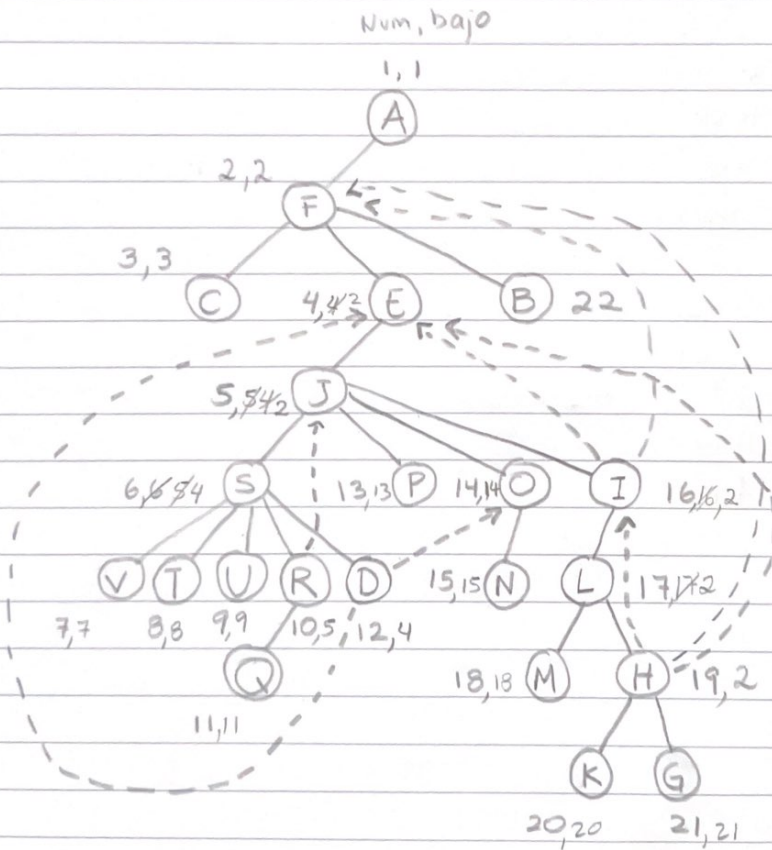 Num, bajo
1, 1
A
2, 2
F
3, 3
C
4, 4 2
E
B
22
5, 5 4 2
J
6, 6 5 4
S
13, 13
P
14, 14
O
I
16, 16, 2
V
T
U
R
D
15, 15
N
L
17, 17 2
7, 7
8, 8
9, 9
10, 5
12, 4
Q
18, 18
M
H
19, 2
11, 11
K
G
20, 20
21, 21